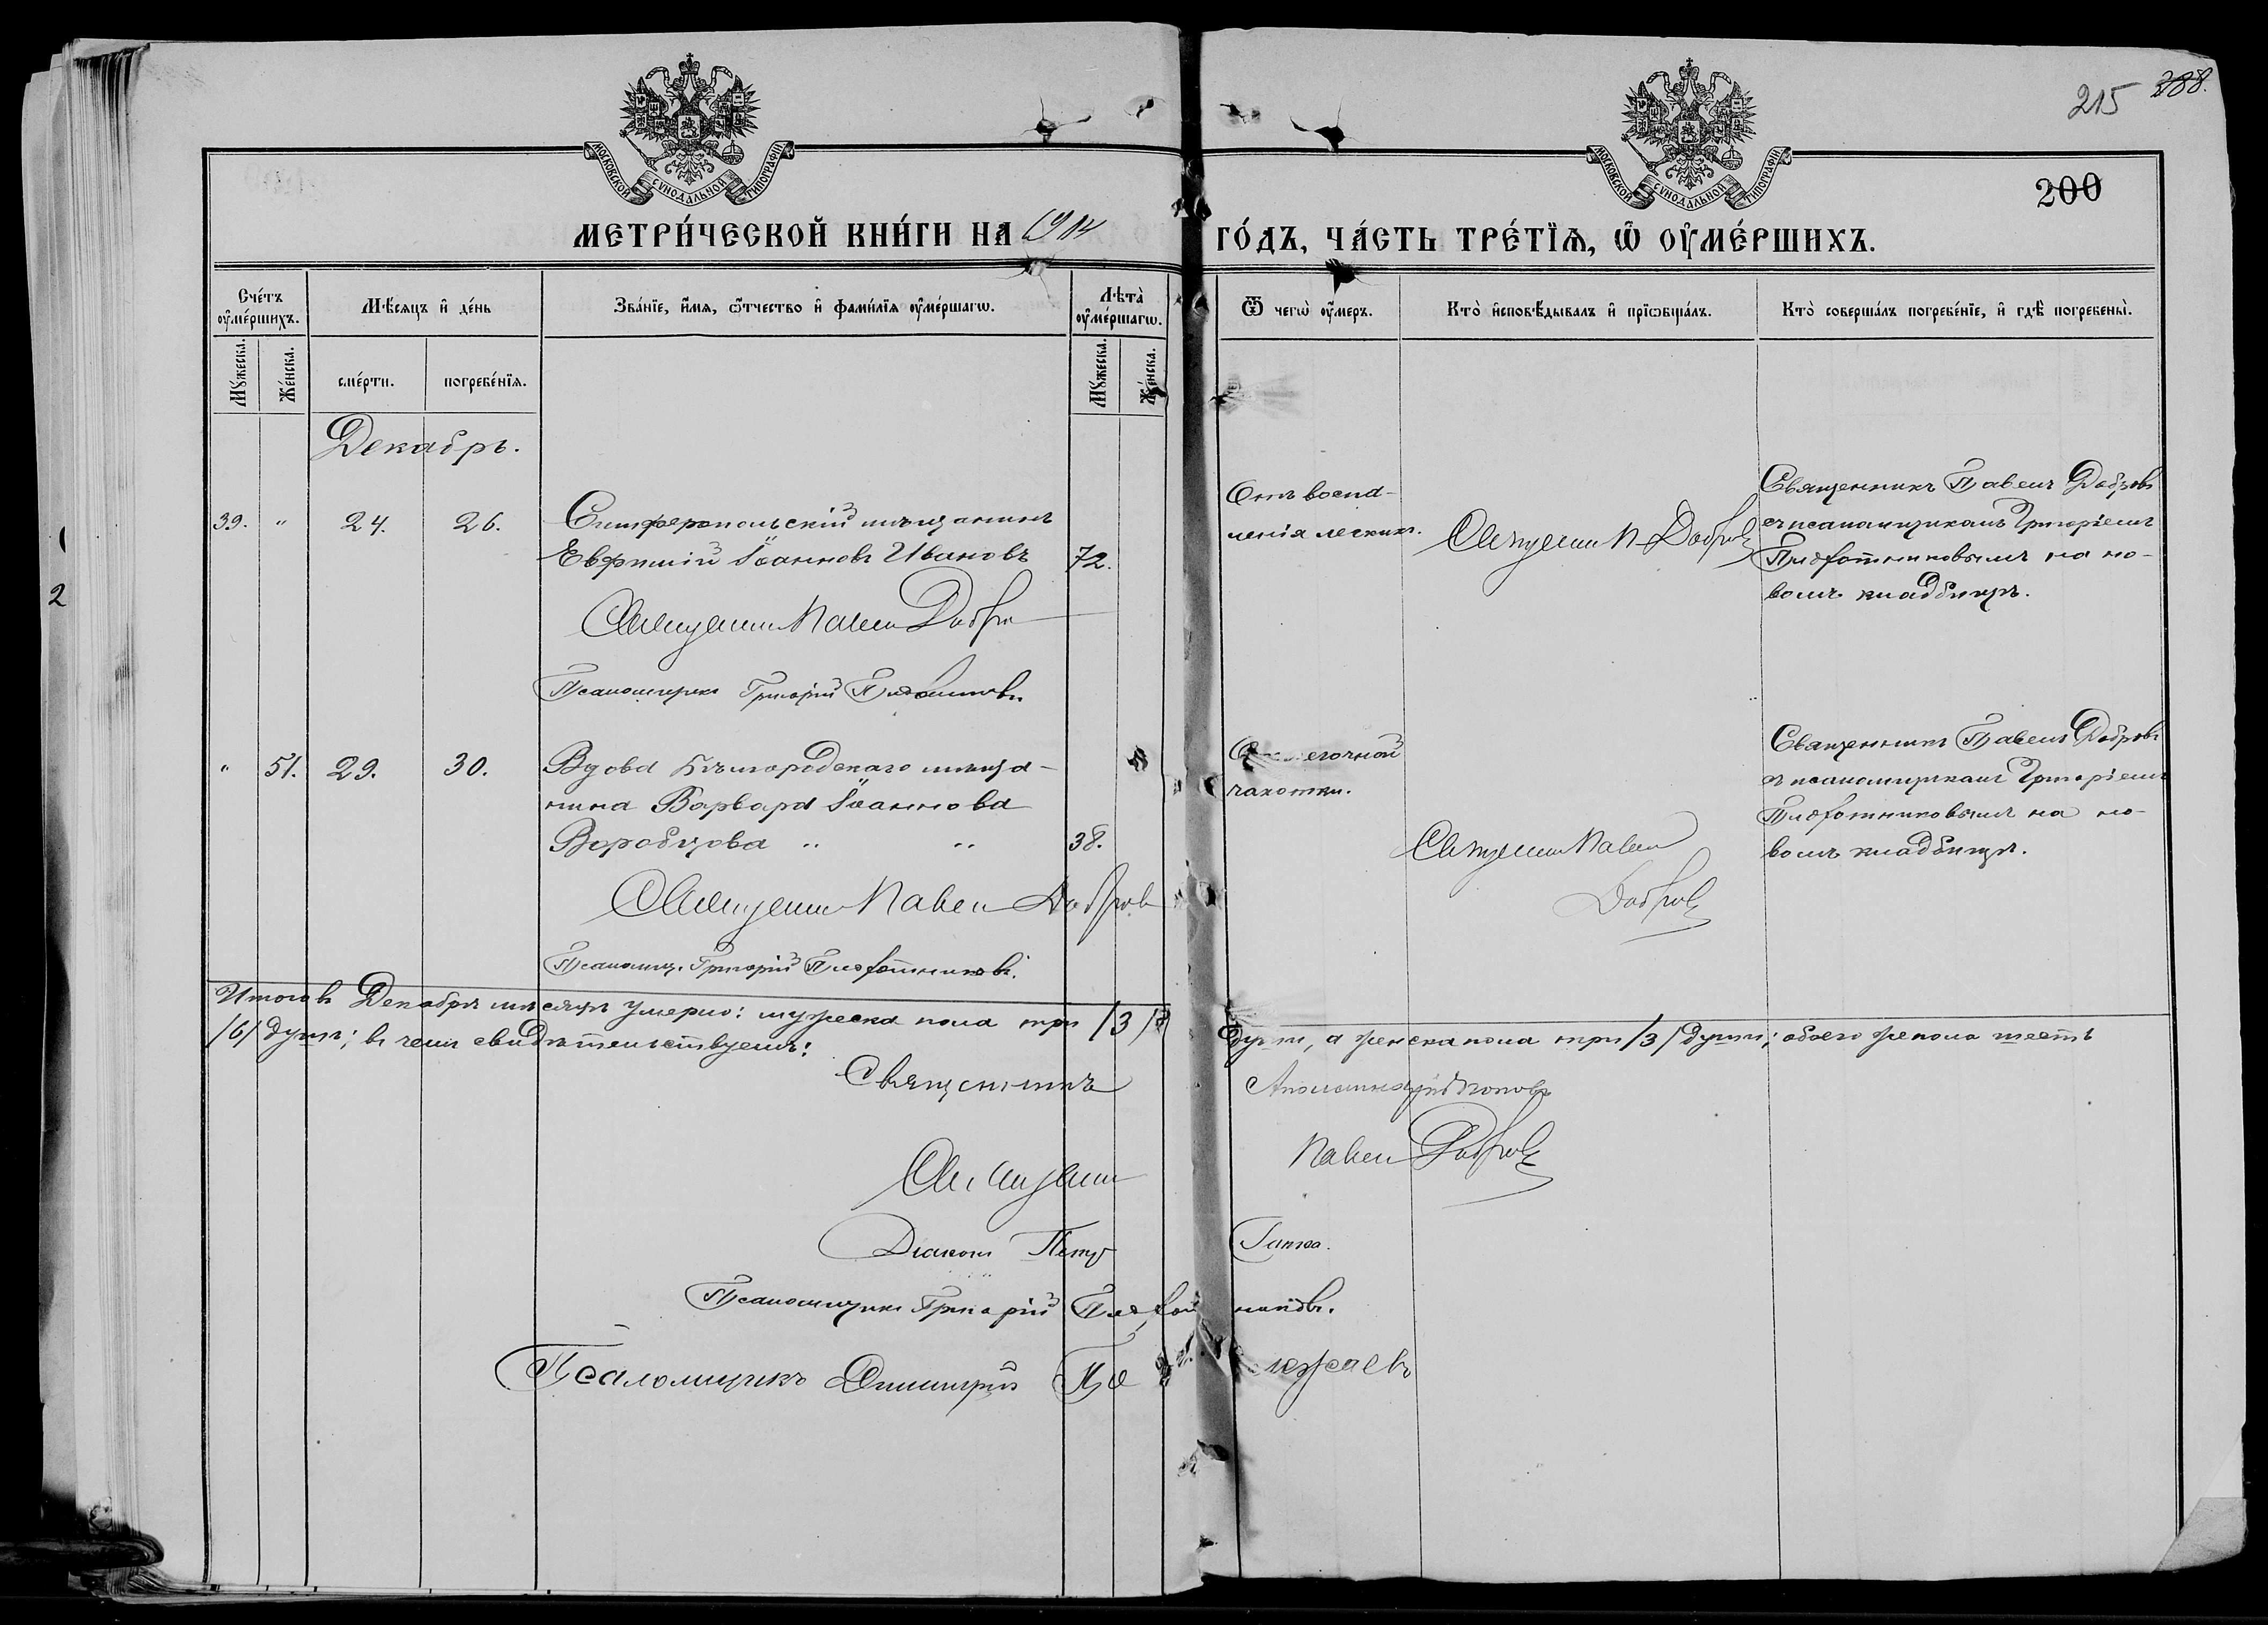 215 388.
200
МОСКОВСКОЙ СѴНОДАЛЬНОЙ ТИПОГРАФІИ
МОСКОВСКОЙ СѴНОДАЛЬНОЙ ТИПОГРАФІИ
МЕТРИ́ЧЕСКОЙ КНИ́ГИ НА 1914 ГО́ДЪ, ЧА́СТЬ ТРЕ́ТЇѦ, Ѿ ОУ҆МЕ́РШИХЪ.
Сче́тъ оу҆ме́ршихъ.
Мꙋ́жеска.
Же́нска.
Мѣ́сяцъ и҆ де́нь
сме́рти.
погребе́нїѧ.
Зва́нїе, и҆́мѧ, ѻ҆́тчество и҆ фами́лїѧ оу҆ме́ршагѡ.
Лѣта̀ оу҆ме́ршагѡ.
Мꙋ́жеска.
Же́нска.
Ѿ чегѡ̀ оу҆́меръ.
Кто̀ и҆сповѣ́дывалъ и҆ прїѡбща́лъ.
Кто̀ соверша́лъ погребе́нїе, и҆ гдѣ̀ погребены̀.
Декабрь.
39. " 24. 26.
Симферопольскій мѣщанинъ
Евфимій Іоанновъ Ивановъ 72.
Священникъ Павелъ Добровъ
Псаломщикъ Григорій
Отъ воспа-
ленія легкихъ.
Священникъ П. Добровъ
Священникъ Павелъ Добровъ
съ псаломщикомъ Григоріемъ
на но-
вомъ кладбищѣ.
" 51. 29. 30.
Вдова Бѣлгородскаго мѣща-
нина Варвара Іоаннова
Воробцова " " 38.
Священникъ Павелъ Добровъ
Псаломщ. Григорій
легочной
чахотки.
Священникъ Павелъ
Добровъ
Священникъ Павелъ Добровъ
съ псаломщикомъ Григоріемъ
на но-
вомъ кладбищѣ.
Итого въ Декабрѣ мѣсяцѣ умерло: мужеска пола три /3/ души, а женска пола три /3/ души; обоего же пола шесть
/6/ душъ; въ чемъ свидѣтельствуемъ:
Священникъ Поповъ
Священникъ Павелъ Добровъ
Діаконъ Петръ
Псаломщикъ Григорій
Псаломщикъ Димитрій
2